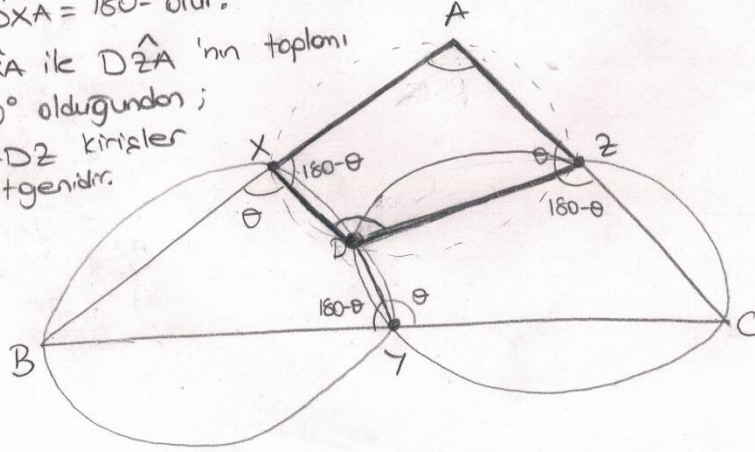 XA = 180- olur.
A ile DẐA 'nın toplamı
0° olduğundan ;
DZ kirişler
tgenidir.
A
X
180-θ
θ
Z
θ
180-θ
D
180-θ
θ
B
Y
C